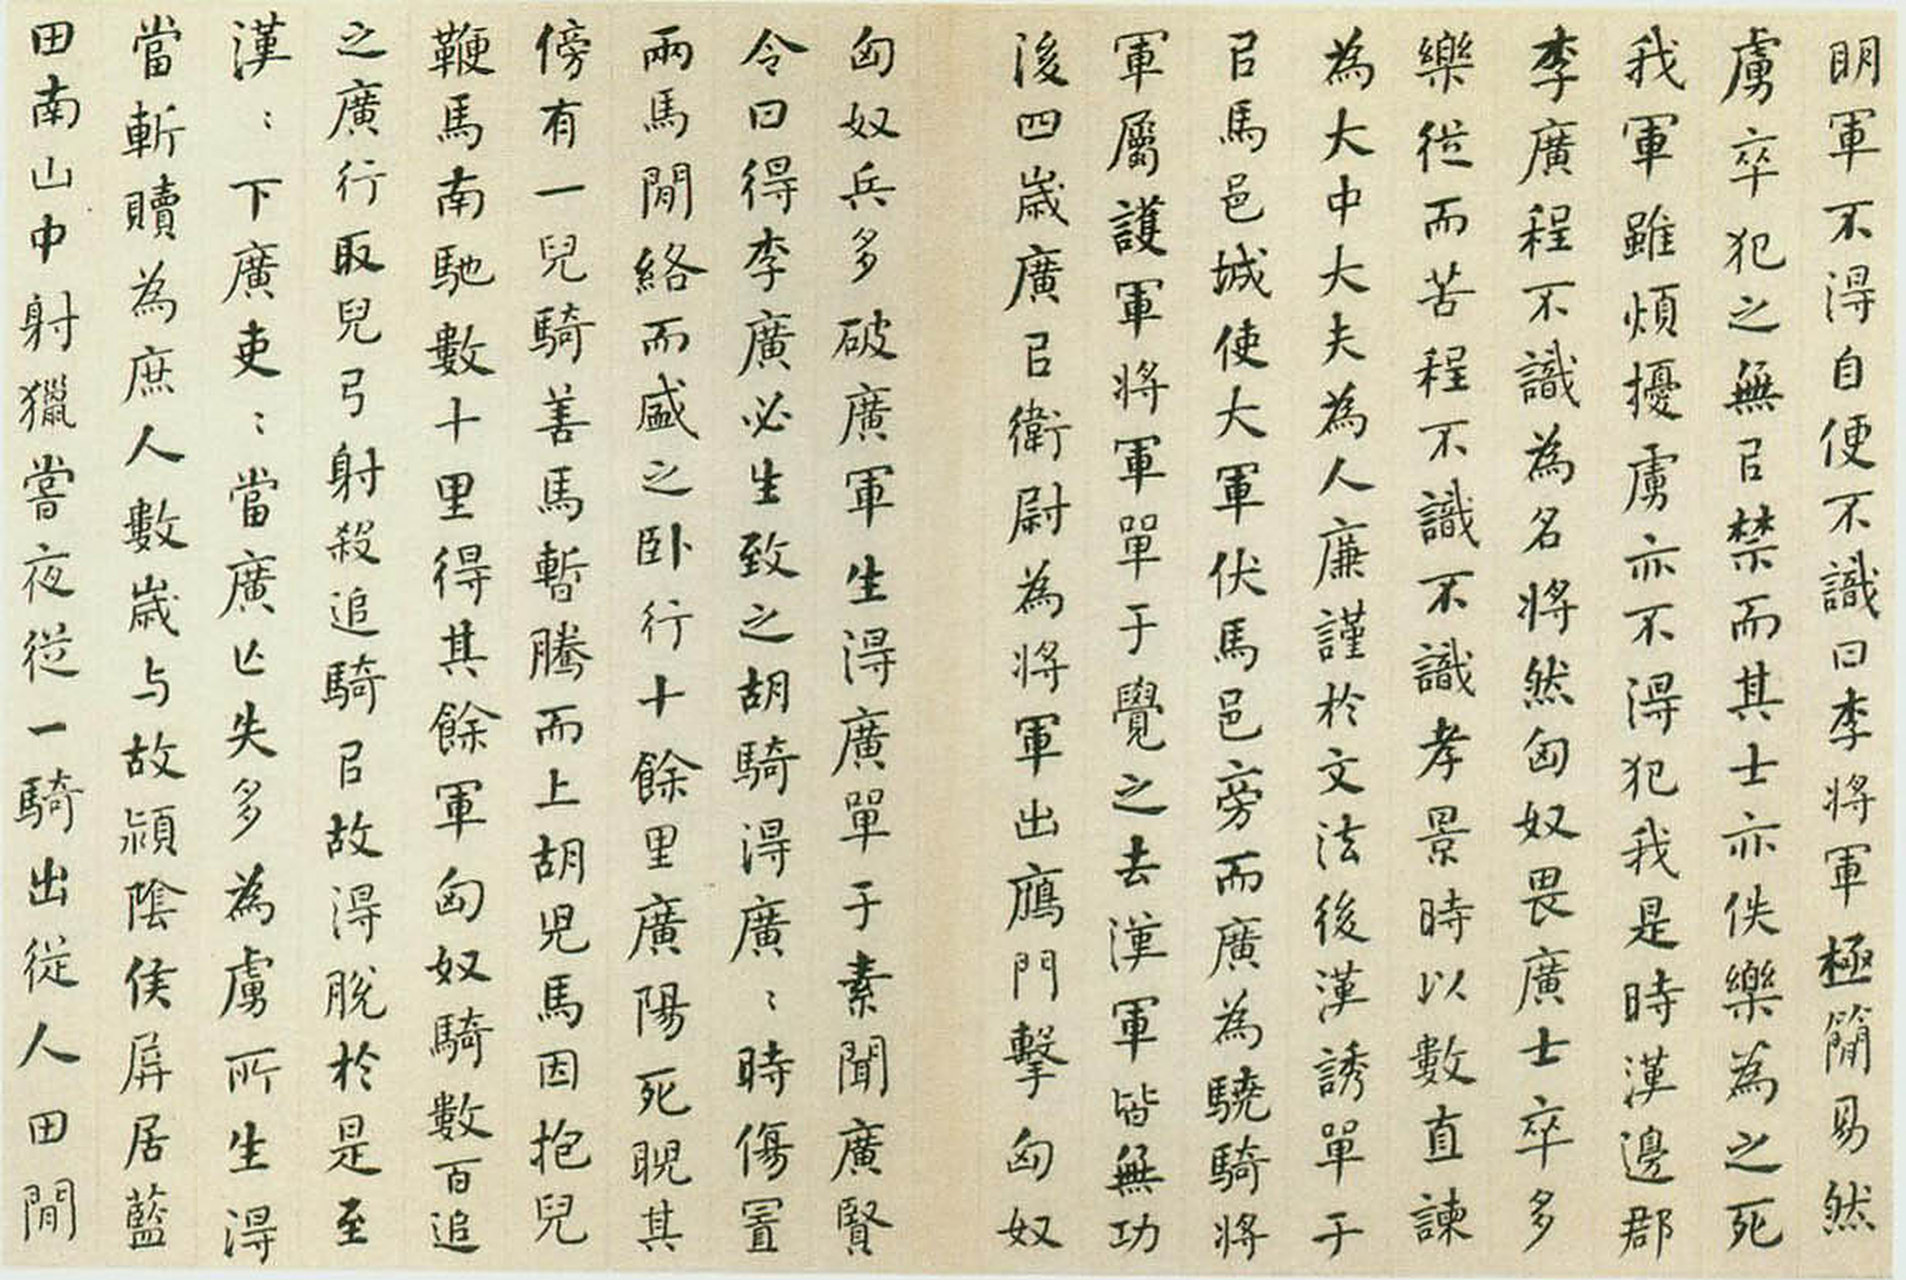 明軍不得自便不識曰李將軍極簡易然
虜卒犯之無㠯禁而其士亦佚樂為之死
我軍雖煩擾虜亦不得犯我是時漢邊郡
李廣程不識為名將然匈奴畏廣士卒多
樂從而苦程不識不識孝景時以數直諫
為大中大夫為人廉謹於文法後漢誘單于
㠯馬邑城使大軍伏馬邑旁而廣為驍騎將
軍屬護軍將軍單于覺之去漢軍皆無功
後四歲廣㠯衛尉為將軍出鴈門擊匈奴
匈奴兵多破廣軍生得廣單于素聞廣賢
令曰得李廣必生致之胡騎得廣〻時傷置
兩馬閒絡而盛之卧行十餘里廣陽死睨其
傍有一兒騎善馬暫騰而上胡兒馬因抱兒
鞭馬南馳數十里得其餘軍匈奴騎數百追
之廣行取兒弓射殺追騎㠯故得脫於是至
漢〻下廣吏〻當廣亾失多為虜所生得
當斬贖為庶人數歲与故潁陰侯屏居藍
田南山中射獵嘗夜從一騎出從人田閒